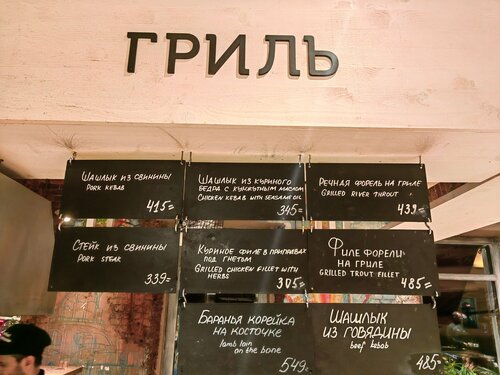 ГРИЛЬ
Шашлык из свинины
Pork kebab
415=
Шашлык из куриного
бедра с кунжутным маслом
Chicken kebab with seasame oil
345=
Речная форель на гриле
Grilled river throut
439=
Стейк из свинины
Pork steak
339=
Куриное филе в приправах
под гнетом
Grilled chicken fillet with
herbs
305=
Филе форели
на гриле
Grilled trout fillet
485=
Баранья корейка
на косточке
lamb loin
on the bone
549=
Шашлык
из говядины
beef kebab
485=